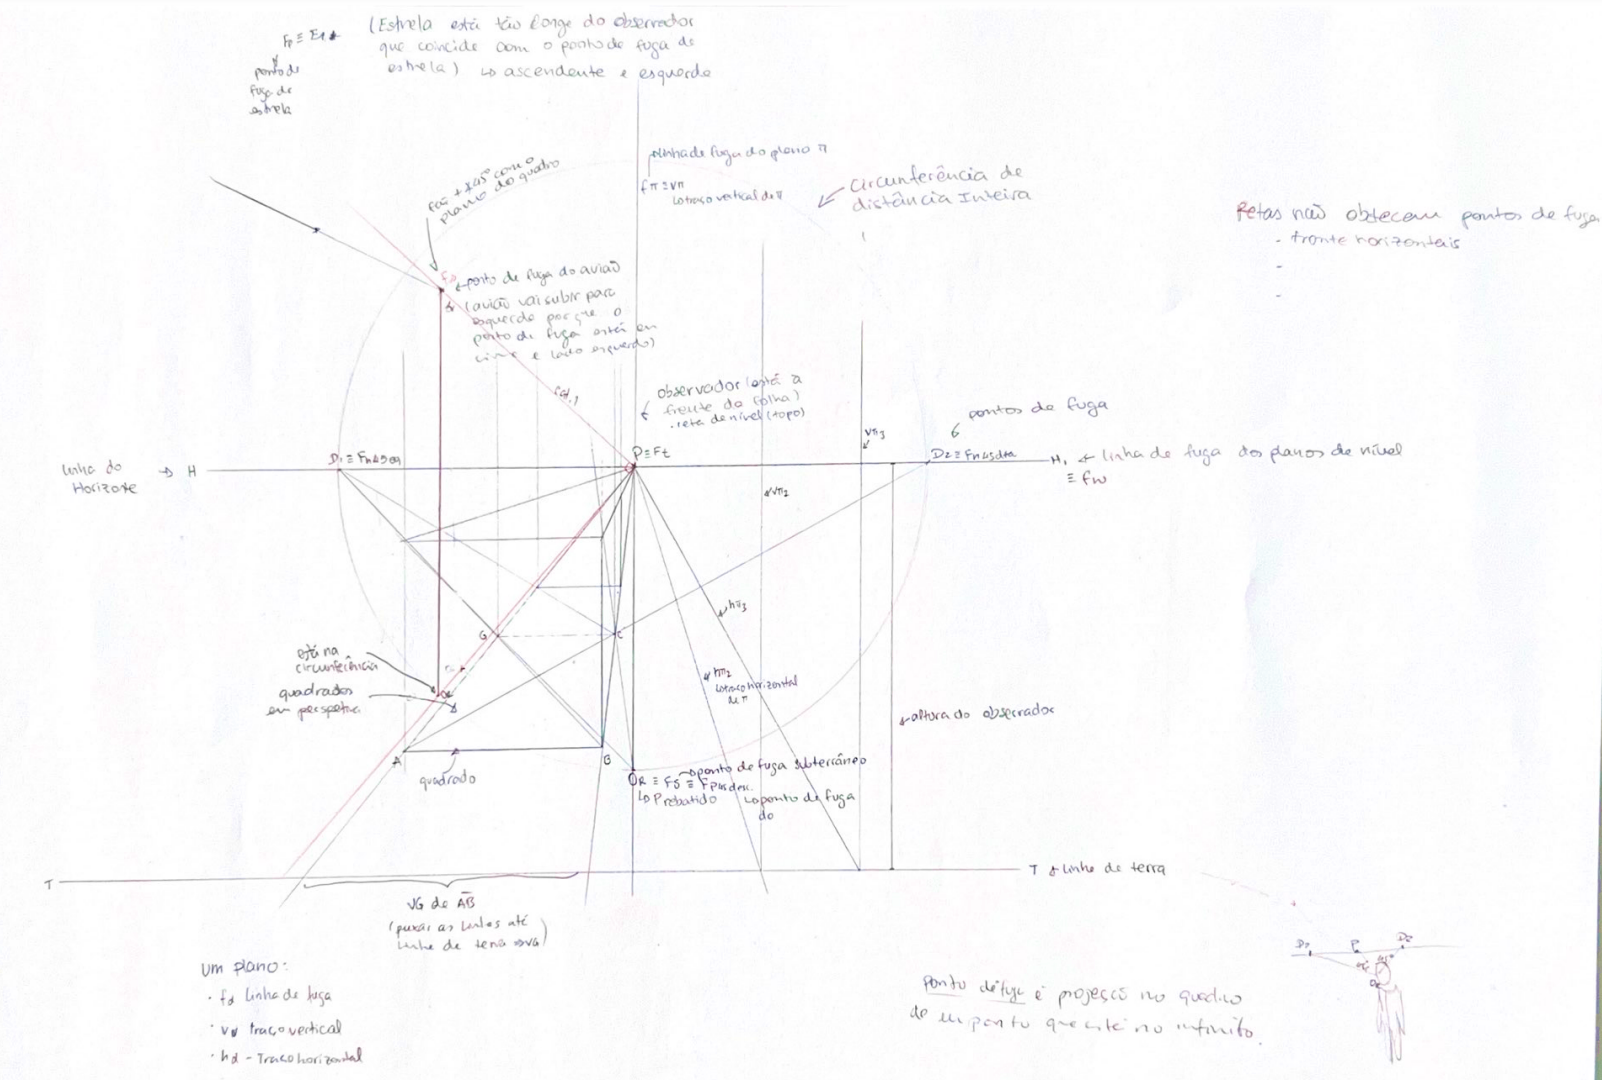 (Estrela está tão longe do observador
que coincide com o ponto de fuga de
estrela) ↳ ascendente e esquerda
ponto de
fuga de
estrela
linha de fuga do plano π
fπ ≡ vπ
↳ traço vertical de π
Circunferência de
distância Inteira
Retas não obtecem pontos de fuga
- fronte horizontais
-
-
plano do quadro
ponto de fuga do avião
(avião vai subir para
esquerda porque o
ponto de fuga está em
cima e lado esquerdo)
observador (está à
frente da folha)
. reta de nível (topo)
pontos de fuga
vπ3
linha do
Horizonte
H
P≡Ft
H,
linha de fuga dos planos de nível
≡ fw
vπ2
hπ3
G
C
está na
circunferência
quadrados
em perspetiva
hπ2
↳ traço horizontal
de π
altura do observador
A
B
quadrado
ponto de fuga subterrâneo
↳ P rebatido
↳ ponto de fuga
do
T
T
linha de terra
VG de AB
(puxar as linhas até
linha de terra ⇒ VG)
um plano:
· fα linha de fuga
· vα traço vertical
· hα - Traço horizontal
ponto de fuga é projeção no quadro
de um ponto que está no infinito.
D1
P
D2